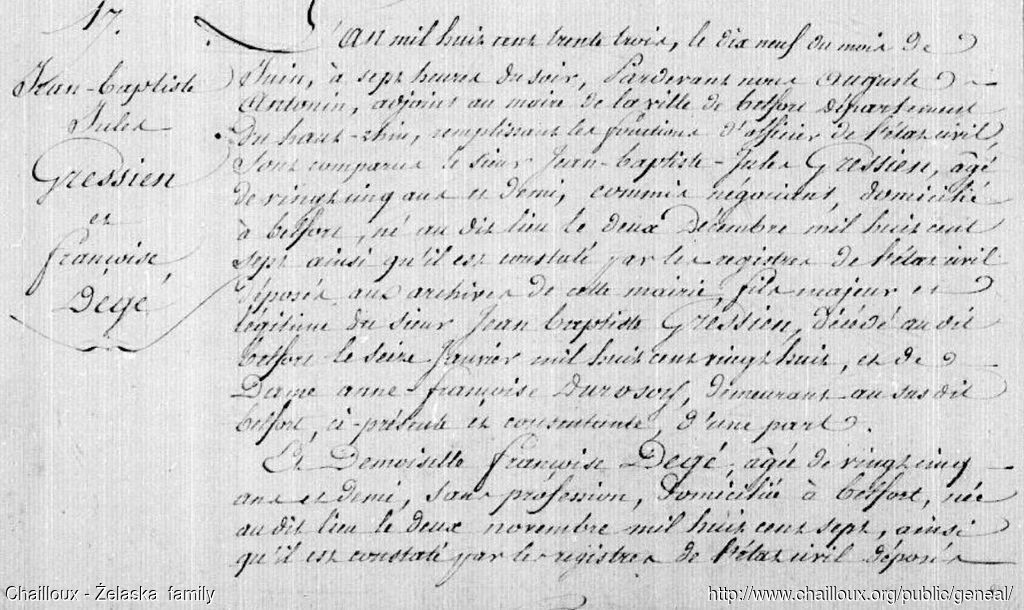 17.
Jean-baptiste
Jules
Gressien
et
françoise
Degé
L'An mil huit cent trente trois, le dix neuf du mois de
Juin, à sept heures du soir, Pardevant nous auguste
Antonin, adjoint au maire de la ville de belfort département
du haut-rhin, remplissant les fonctions d'officier de l'état civil,
Sont comparus le sieur Jean-baptiste-Jules Gressien, âgé
de vingt cinq ans et demi, commis negociant, domicilié
à belfort, né au dit lieu le deux Décembre mil huit cent
sept ainsi qu'il est constaté par les registres de l'état civil
déposés aux archives de cette mairie, fils majeur et
légitime du sieur Jean baptiste Gressien, décédé au dit
belfort le seize Janvier mil huit cent vingt huit, et de
Dame anne-françoise, demeurant au sus dit
belfort, ci-présente et consentante, d'une part.
Et Demoiselle françoise Degé, agée de vingt cinq
ans et demi, sans profession, domiciliée à belfort, née
au dit lieu le deux novembre mil huit cent sept, ainsi
qu'il est constaté par les registres de l'état civil déposés
Chailloux - Żelaska family
http://www.chailloux.org/public/geneal/